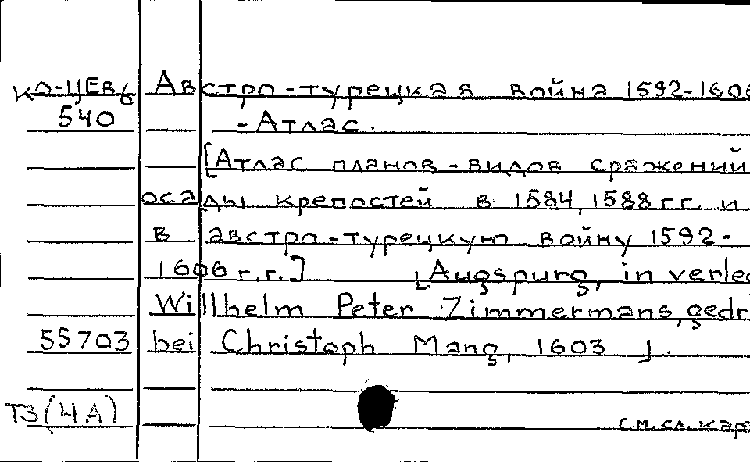 Ко-ЦЕв6 Австро-турецкая война 1592-1606
540 -Атлас.
[Атлас планов-видов сражений
осады крепостей в 1584, 1588 гг. и
в австро-турецкую войну 1592-
1606 г.г.] [Augspurg, in verleg
Willhelm Peter Zimmermans, gedr
55703 bei Christoph Mang, 1603 ].
ТЗ(4А)
См. сл. кар